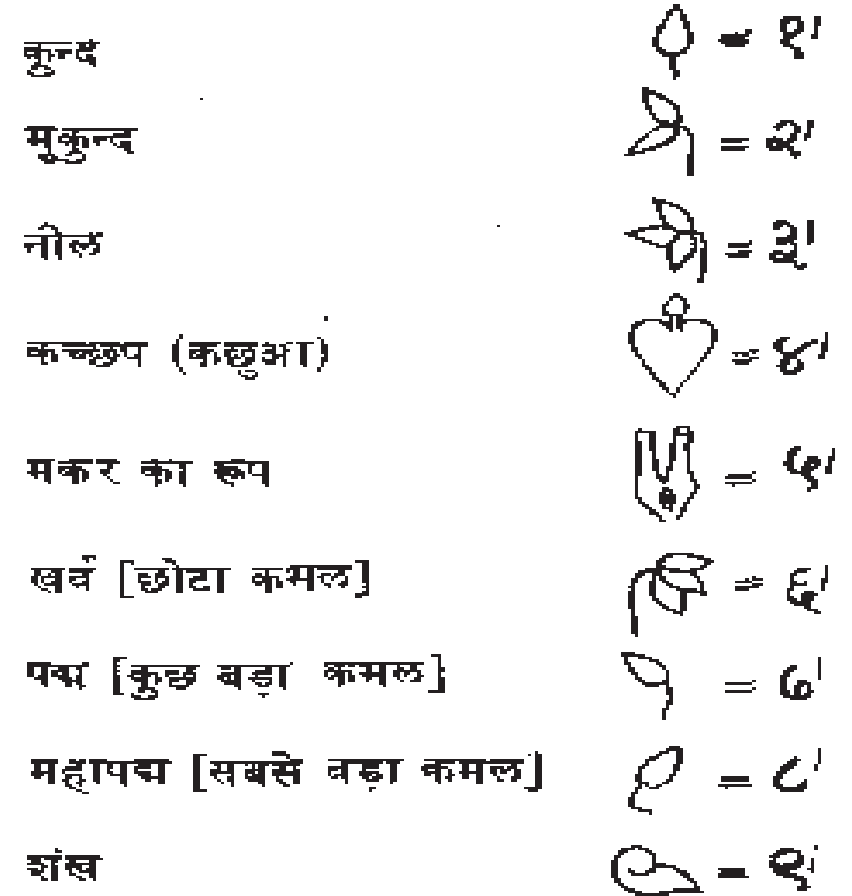 कुन्द = १'
मुकुन्द = २'
नील = ३'
कच्छप (कछुआ) = ४'
मकर का रूप = ५'
खर्व [छोटा कमल] = ६'
पद्म [कुछ बड़ा कमल] = ७'
महापद्म [सबसे बड़ा कमल] = ८'
शंख = ९'